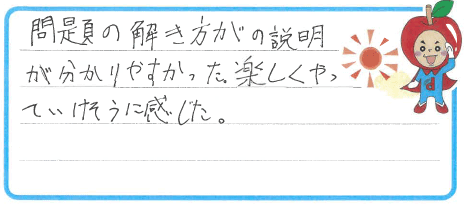 問題の解き方がの説明
が分かりやすかった。楽しくやっ
ていけそうに感じた。